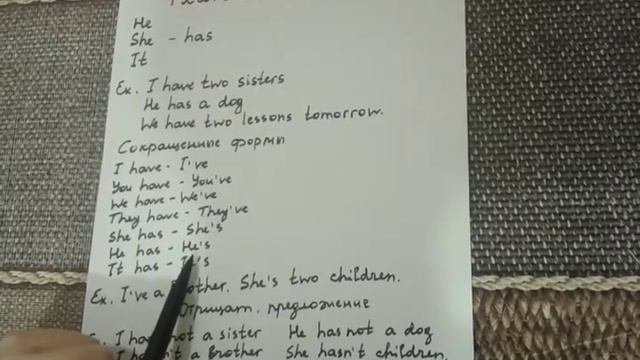 He
She - has
It
Ex. I have two sisters
He has a dog
We have two lessons tomorrow.
Сокращенные формы
I have - I've
You have - You've
We have - We've
They have - They've
She has - She's
He has - He's
It has -
Ex. I've a brother. She's two children.
Отрицат. предложение
I have not a sister He has not a dog
I haven't a brother She hasn't children.